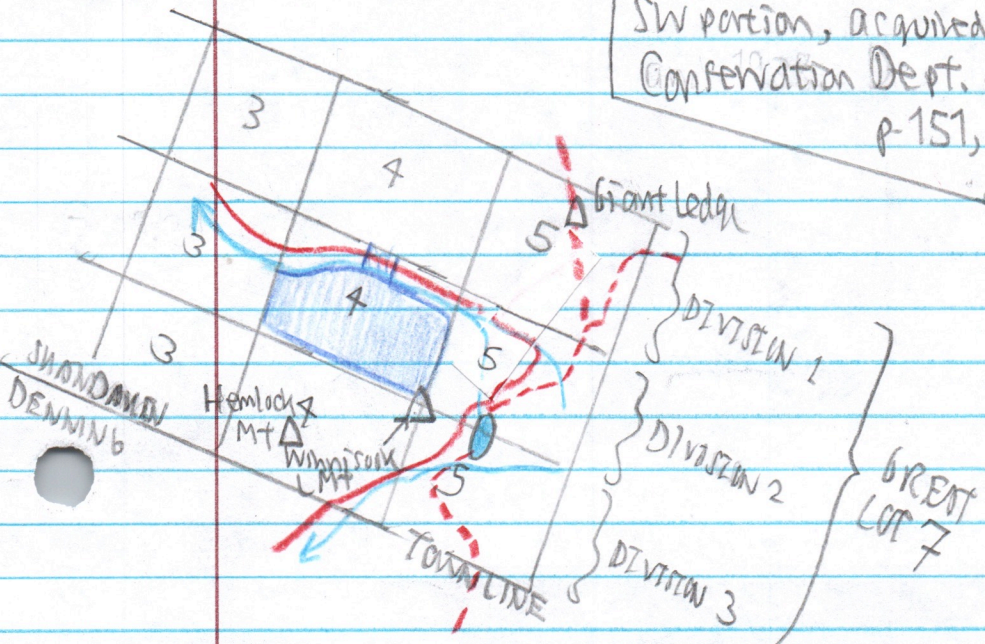 SW portion, acquired
Conservation Dept.
p-151,
3
4
Giant Ledge
5
3
4
5
DIVISION 1
3
SHANDAKEN
DENNING
Hemlock
Mt
4
Winnisook
L Mt
5
DIVISION 2
GREAT
LOT 7
TOWN LINE
DIVISION 3